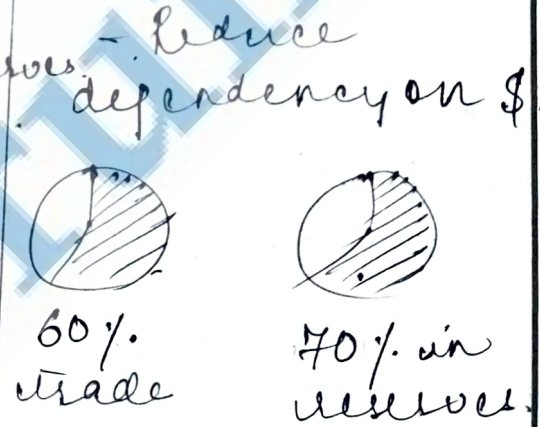 - Reduce
dependency on $
60 %.
trade
70 %. in
reserves.